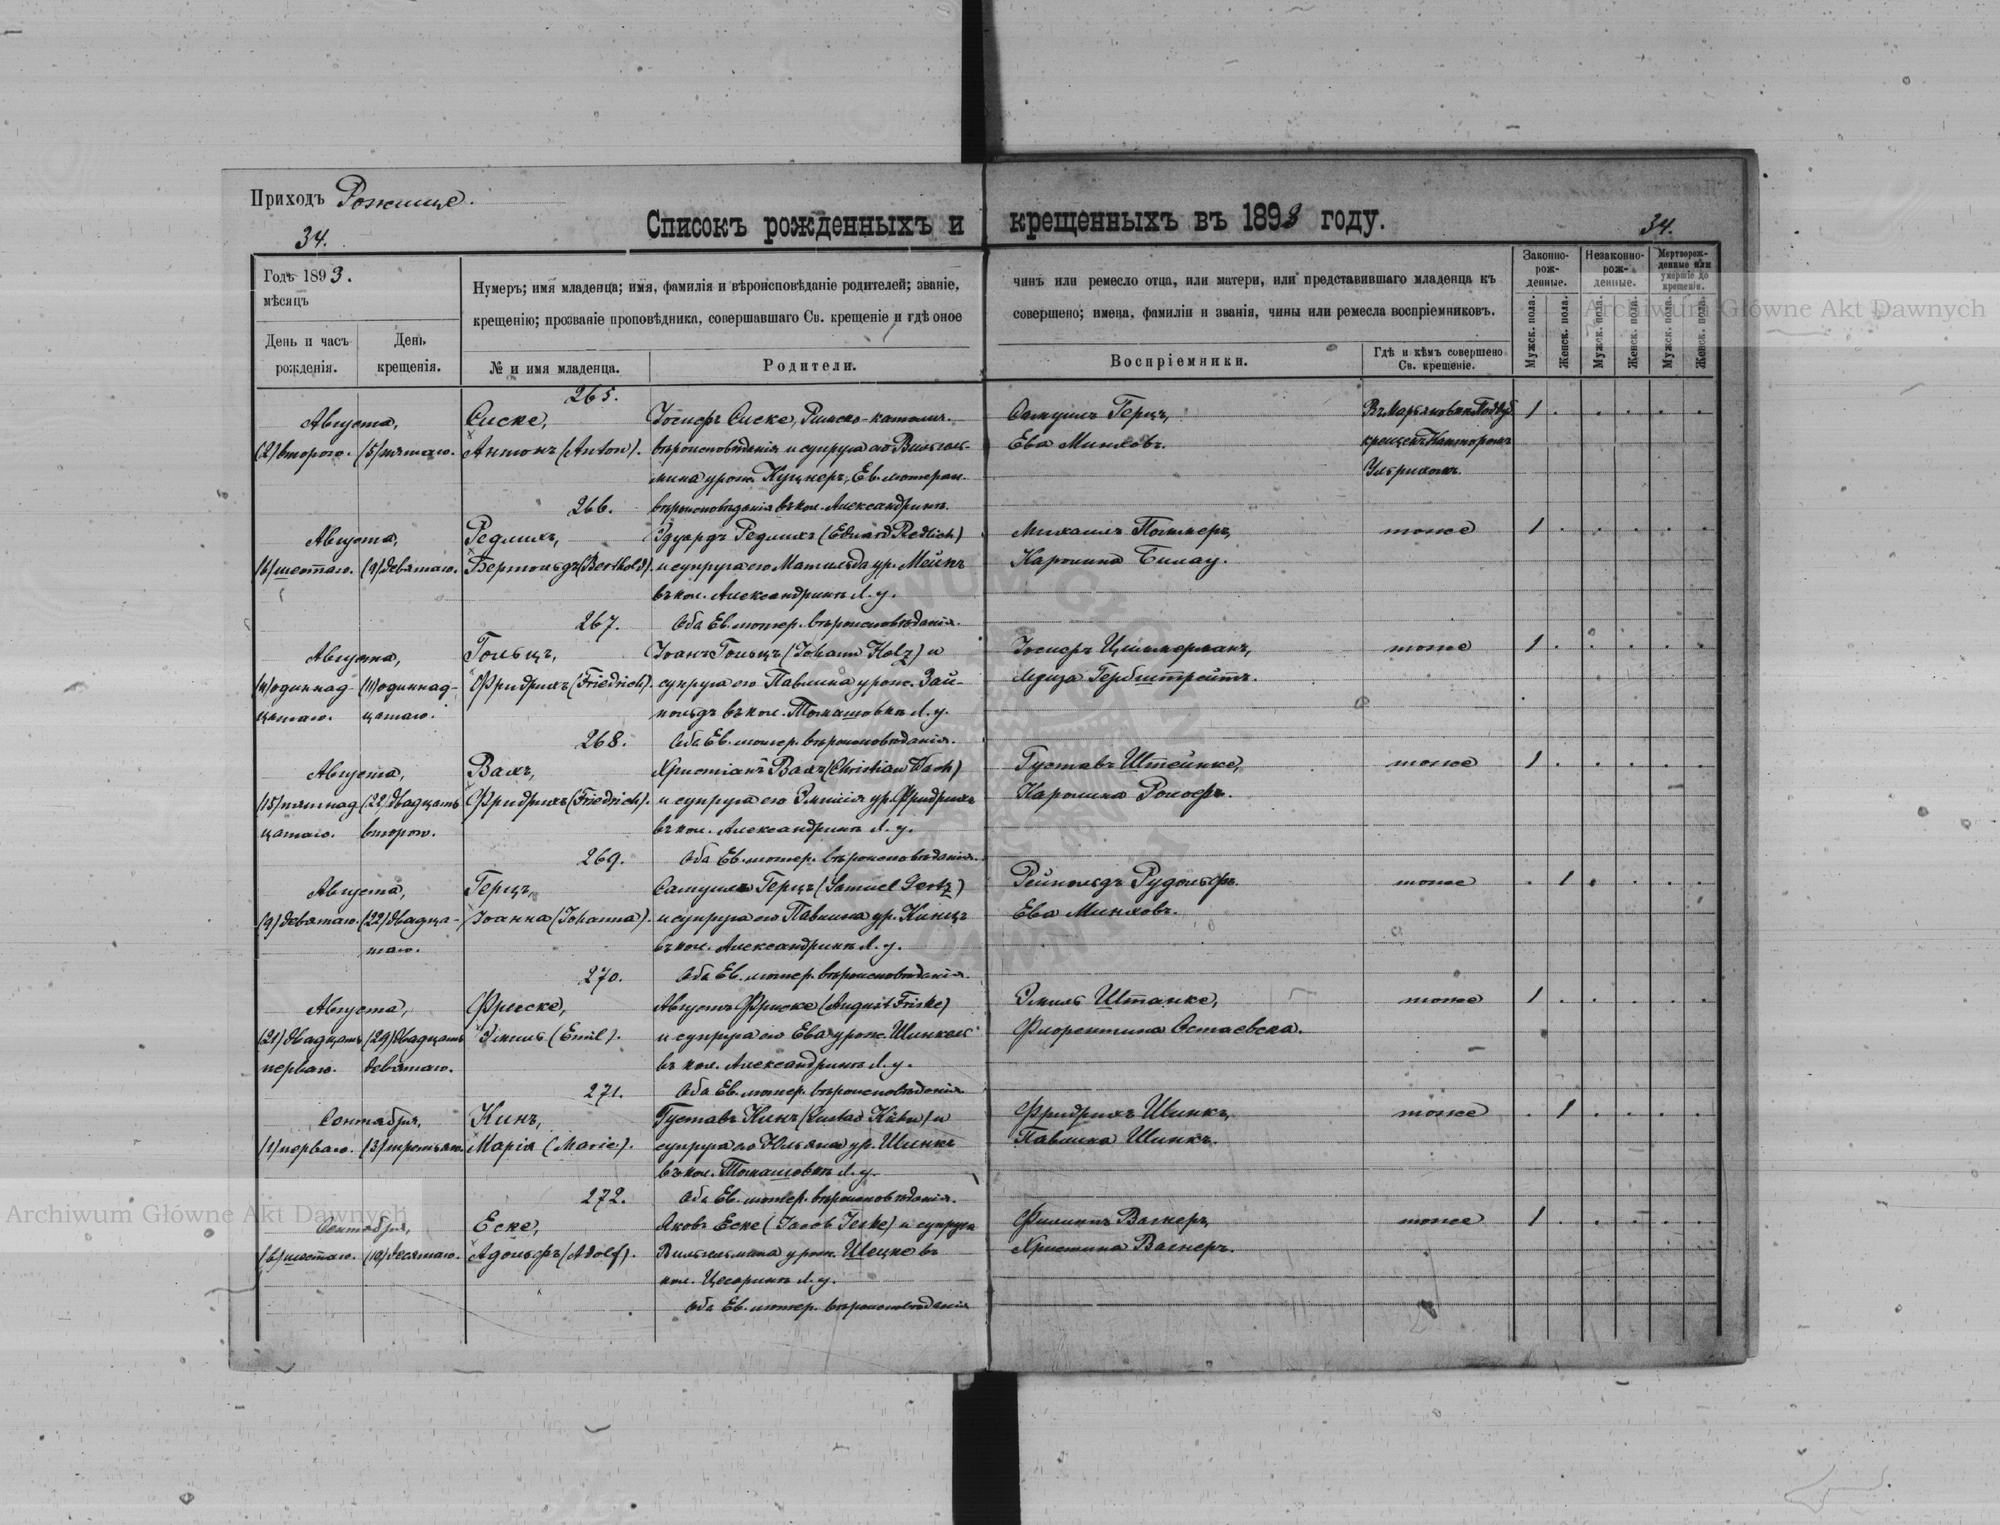 Приходъ Рожище.
34.
Списокъ рожденныхъ и крещенныхъ въ 1893 году.
34.
Годъ 1893.
мѣсяцъ
День и часъ рожденія.
День крещенія.
Нумеръ; имя младенца; имя, фамилія и вѣроисповѣданіе родителей; званіе,
крещенію; прозваніе проповѣдника, совершавшаго Св. крещеніе и гдѣ оное
№ и имя младенца.
Родители.
чинъ или ремесло отца, или матери, или представившаго младенца къ
совершено; имена, фамиліи и званія, чины или ремесла воспріемниковъ.
Воспріемники.
Гдѣ и кѣмъ совершено
Св. крещеніе.
Законно-
рож-
денные.
Незаконно-
рож-
денные.
Мертворож-
денные или
умершіе до
крещенія.
Мужск. пола.
Женск. пола.
Мужск. пола.
Женск. пола.
Мужск. пола.
Женск. пола.
265.
Августа,
(2) второго. (5) пятаго.
Сиске,
Антонъ (Anton).
Іосифъ Сиске, Римско-католич.
вѣроисповѣданія и супруга его Вильгель-
мина урож. Куцнеръ, Ев. лютеран.
вѣроисповѣданія въ кол. Александринѣ
Самуилъ Герцъ,
Ева Минховъ.
крещенъ Канторомъ
Ульрихомъ.
1
266.
Августа,
(6) шестаго. (9) девятаго.
Редлихъ,
Бертольдъ (Berthold).
Эдуардъ Редлихъ (Eduard Redlich)
и супруга его Матильда ур. Мейнъ
въ кол. Александринѣ Л. у.
Оба Ев. лютер. вѣроисповѣданія.
Михаилъ
Каролина Билау.
тоже
1
267.
Августа,
(11) одиннад-
цатаго.
(11) одиннад-
цатаго.
Гольцъ,
Фридрихъ (Friedrich).
Іоанъ Гольцъ (Johann Holz) и
супруга его Павлина урож. Зай-
нольдъ въ кол. Томашовкѣ Л. у.
Оба Ев. лютер. вѣроисповѣданія.
Іосифъ Циммерманъ,
Луиза Гербштрейтъ.
тоже
1
268.
Августа,
(15) пятнад-
цатаго.
(22) двадцать
второго.
Вахъ,
Фридрихъ (Friedrich).
Христіанъ Вахъ (Christian Wach)
и супруга его Эмилія ур. Фридрихъ
въ кол. Александринѣ Л. у.
Оба Ев. лютер. вѣроисповѣданія.
Густавъ Штейнке,
Каролина
тоже
1
269.
Августа,
(9) девятаго. (22) двадца-
таго.
Герцъ,
Іоанна (Johanna).
Самуилъ Герцъ (Samuel Gertz)
и супруга его Павлина ур. Кинцъ
въ кол. Александринѣ Л. у.
Оба Ев. лютер. вѣроисповѣданія.
Рейнольдъ Рудольфъ.
Ева Минховъ.
тоже
1
270.
Августа,
(21) двадцать
перваго.
(29) двадцать
девятаго.
Фриске,
Эмиль (Emil).
Августъ Фриске (August Friske)
и супруга его Ева урож. Шинкель
въ кол. Александринѣ Л. у.
Оба Ев. лютер. вѣроисповѣданія
Эмиль Штанке,
Флорентина Остаевска.
тоже
1
271.
Сентября,
(1) перваго. (3) третьяго.
Кинъ,
Марія (Marie).
Густавъ Кинъ (Gustav Kühn) и
супруга его Юльяна ур. Шинкъ
въ кол. Томашовкѣ Л. у.
Оба Ев. лютер. вѣроисповѣданія.
Фридрихъ Шинкъ,
Павлина Шинкъ.
тоже
1
272.
Сентября,
(6) шестаго. (10) десятаго.
Еске,
Адольфъ (Adolf).
Яковъ Еске (Jacob Jeske) и супруга
Вильгельмина урож. Шецке въ
кол. Цезаринѣ Л. у.
Оба Ев. лютер. вѣроисповѣданія
Филиппъ Вагнеръ,
Христина Вагнеръ.
тоже
1
Archiwum Główne Akt Dawnych
Archiwum Główne Akt Dawnych